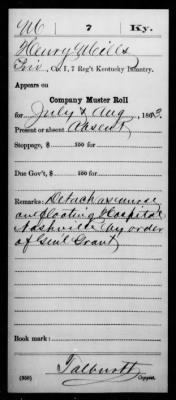 M 7 Ky.
Henry Mills
Pvt, Co. I, 7 Reg't Kentucky Infantry.
Appears on
Company Muster Roll
for July & Aug, 1863.
Present or absent Absent
Stoppage, $ 100 for
Due Gov't, $ 100 for
Remarks: Detach as nurse
on floating Hospital
Nashville by order
of Gen'l Grant
Book mark:
(358) Talbott
Copyist.